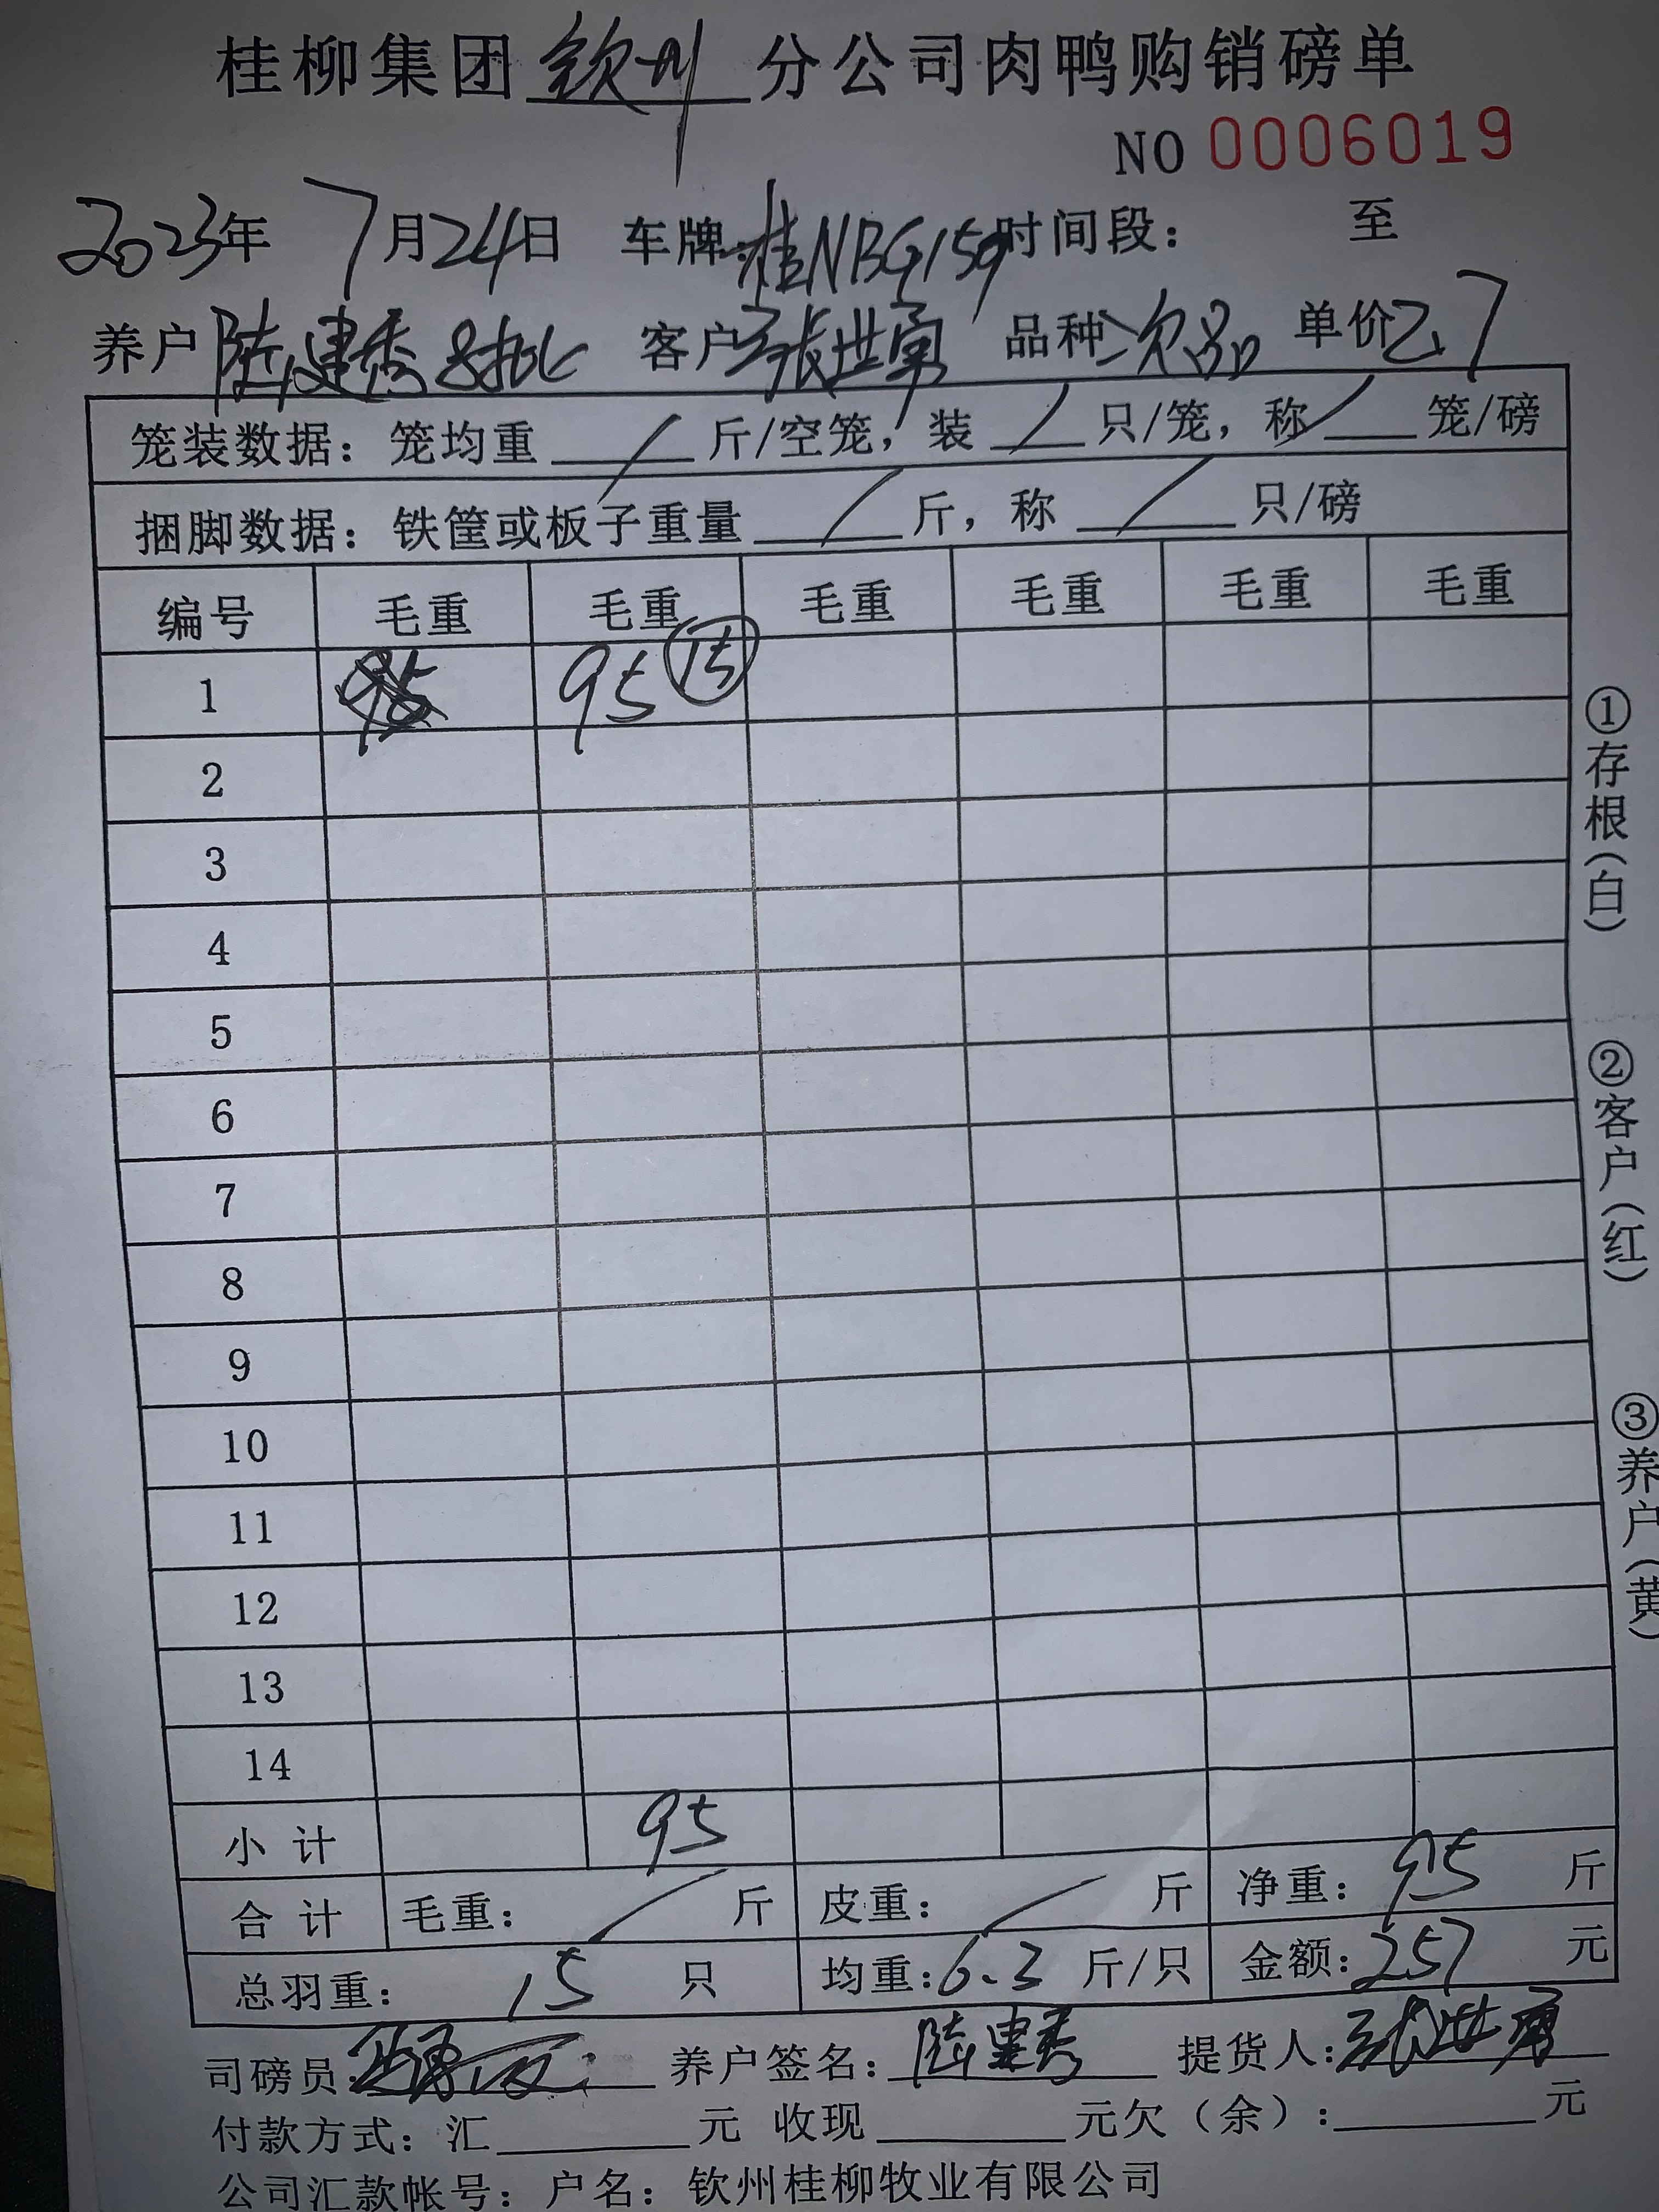 桂柳集团钦州分公司肉鸭购销磅单
NO 0006019
2023年 7月24日 车牌:桂NBG159 时间段: 至
养户 陆建秀 8批 客户 张世勇 品种 次品 单价 2.7
笼装数据：笼均重 / 斤/空笼，装 / 只/笼，称 / 笼/磅
捆脚数据：铁筐或板子重量 / 斤，称 / 只/磅
编号 毛重 毛重 毛重 毛重 毛重 毛重
1 95 95 15
2
3
4
5
6
7
8
9
10
11
12
13
14
小计 95
合计 毛重： / 斤 皮重： / 斤 净重：95 斤
总羽重： 15 只 均重:6.3 斤/只 金额:257 元
司磅员: 养户签名：陆建秀 提货人:张世勇
付款方式：汇 元 收现 元欠（余）: 元
公司汇款帐号：户名：钦州桂柳牧业有限公司
①存根（白）
②客户（红）
③养户（黄）